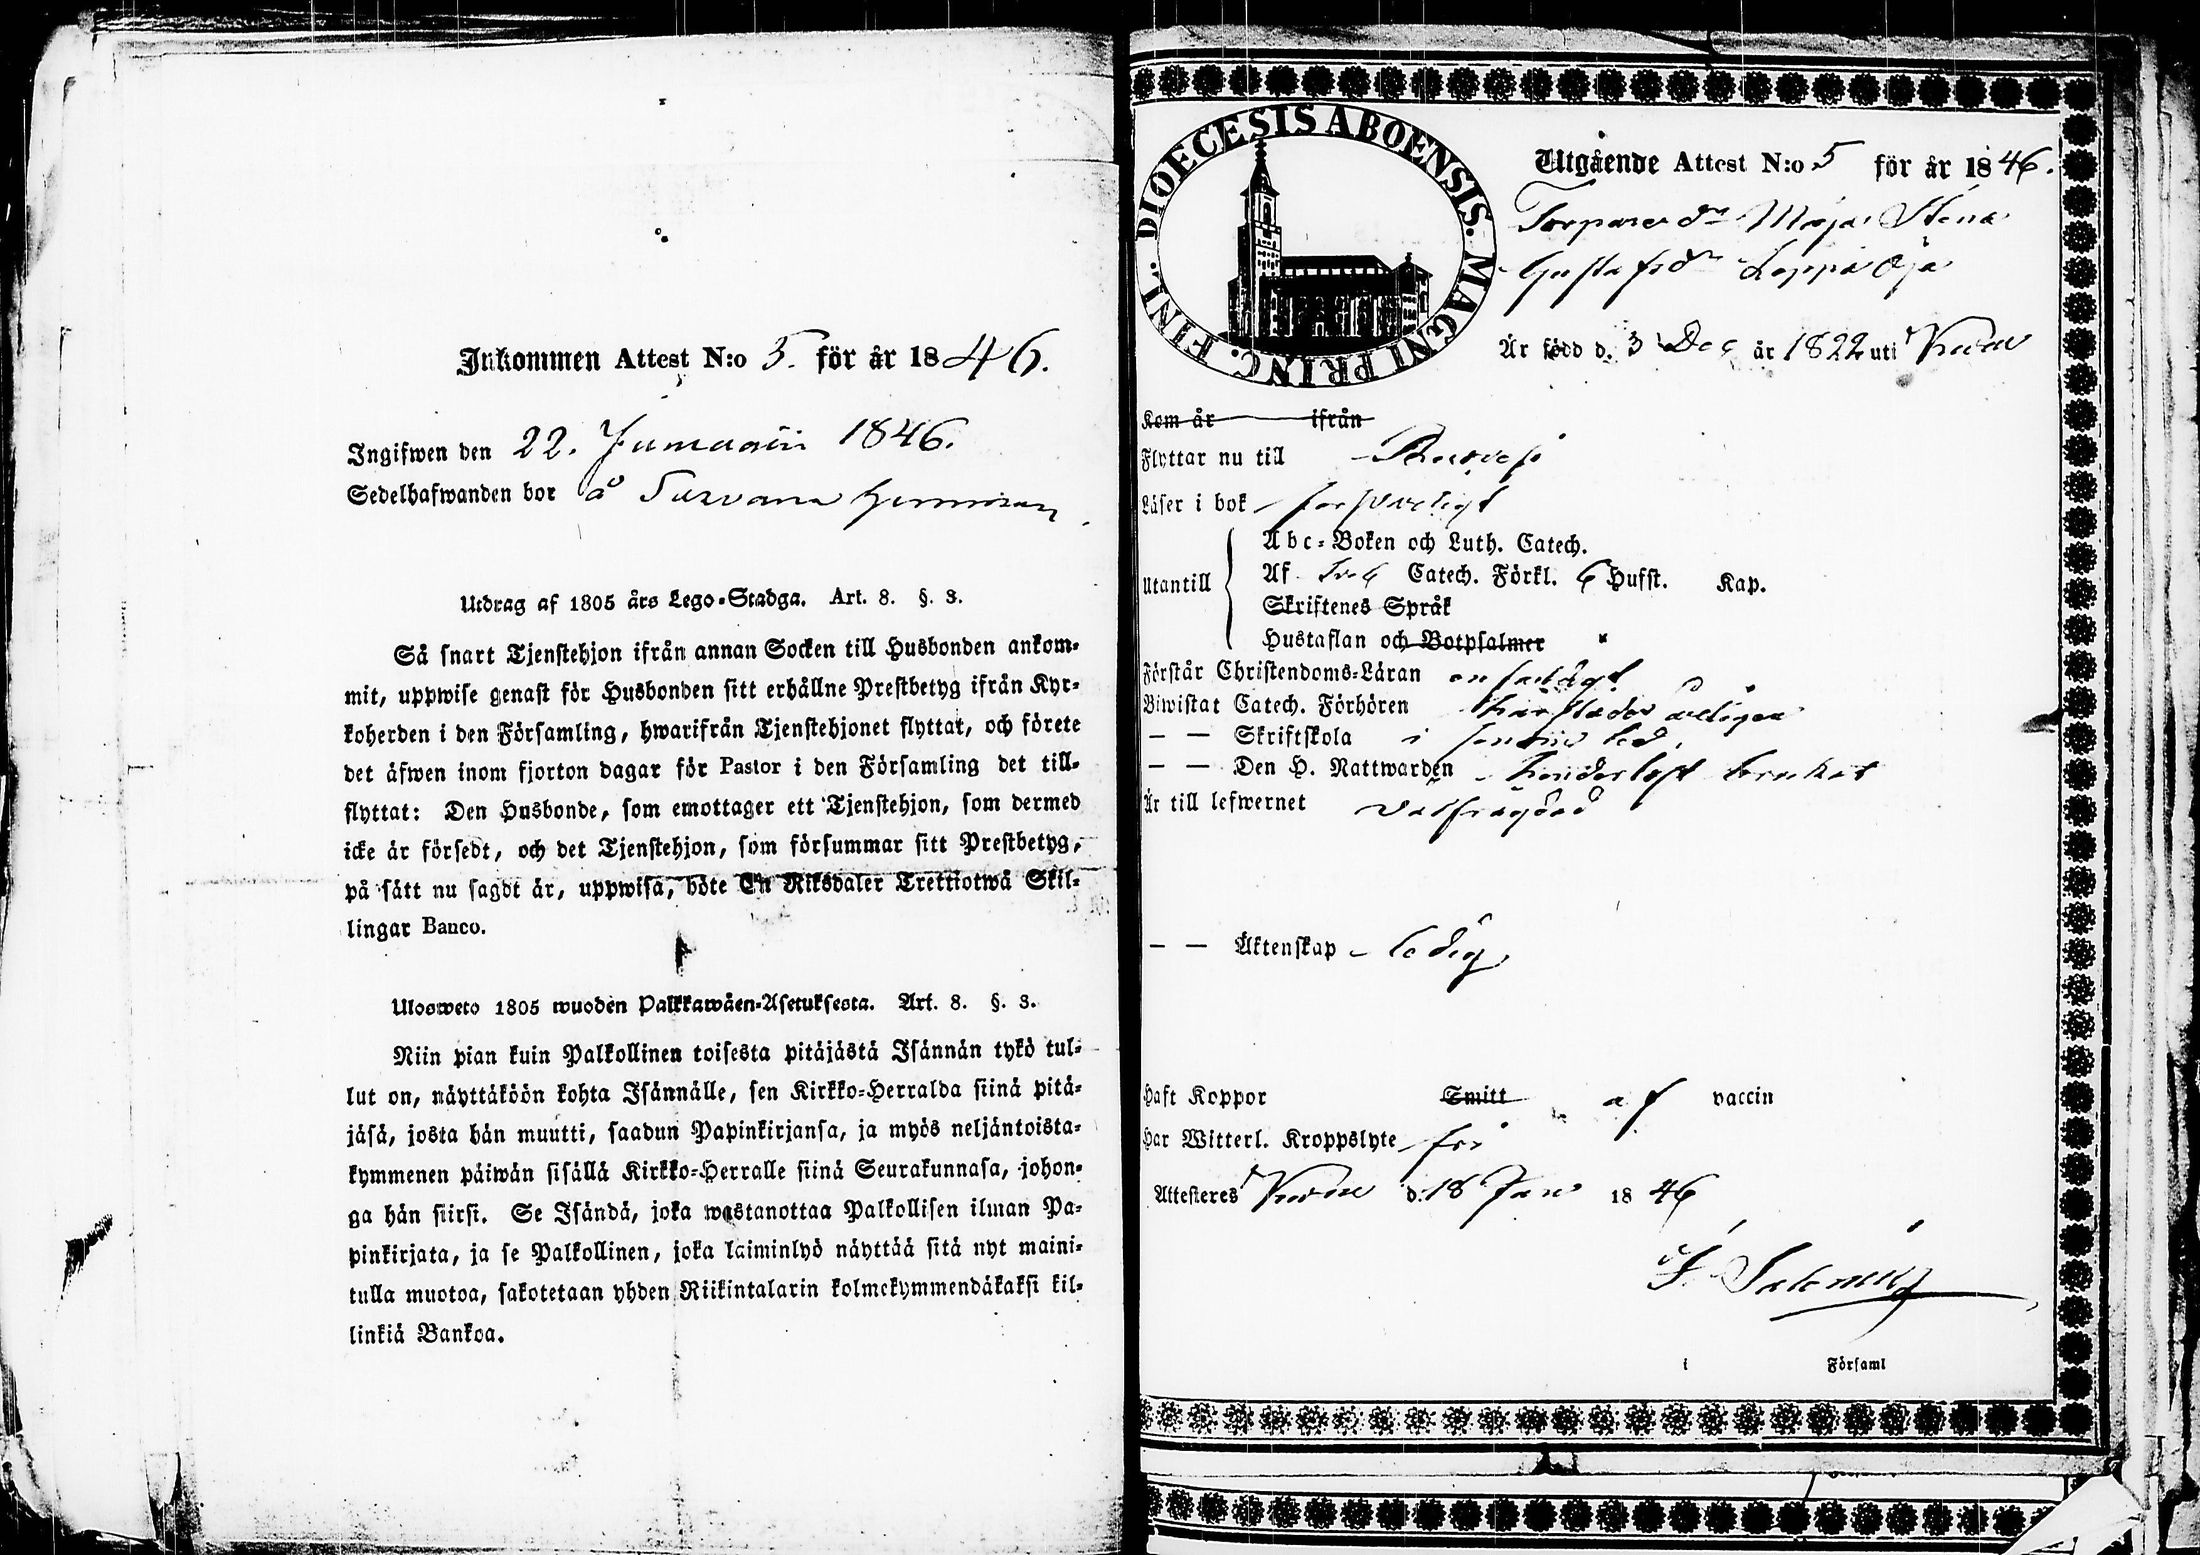 Inkommen Attest N:o 5. för år 1846.
Ingifwen den 22. Januarii 1846.
Sedelhafwanden bor å
Utdrag af 1805 års Lego-Stadga. Art. 8. §. 3.
Så snart Tjenstehjon ifrån annan Socken till Husbonden ankom-
mit, uppwise genast för Husbonden sitt erhållne Prestbetyg ifrån Kyr-
koherden i den Församling, hwarifrån Tjenstehjonet flyttat, och förete
det äfwen inom fjorton dagar för Pastor i den Församling det till-
flyttat: Den Husbonde, som emottager ett Tjenstehjon, som dermed
icke är försedt, och det Tjenstehjon, som försummar sitt Prestbetyg,
på sätt nu sagdt är, uppwisa, böte En Riksdaler Trettiotwå Skil-
lingar Banco.
Ulosweto 1805 wuoden Palkkawäen-Asetuksesta. Art. 8. §. 3.
Niin pian kuin Palkollinen toisesta pitäjästä Isännän tykö tul-
lut on, näyttäköön kohta Isännälle, sen Kirkko-Herralda siinä pitä-
jäsä, josta hän muutti, saadun Papinkirjansa, ja myös neljäntoista-
kymmenen päiwän sisällä Kirkko-Herralle siinä Seurakunnasa, johon-
ga hän siirsi. Se Isändä, joka wastanottaa Palkollisen ilman Pa-
pinkirjata, ja se Palkollinen, joka laiminlyö näyttää sitä nyt maini-
tulla muotoa, sakotetaan yhden Riikintalarin kolmekymmendäkaksi kil-
linkiä Bankoa.
DIOECESIS ABOENSIS. MAGNI PRINC. FINL.
Utgående Attest N:o 5 för år 1846.
Torpare dr Maja Stena
Gustafsdr Leppäoja
Är född d. 3 Dec år 1822 uti
Kom år ifrån
Flyttar nu till Ruovesi
Läser i bok försvarligt
Utantill
Abc-Boken och Luth. Catech.
Af Sveb Catech. Förkl. 6 Hufst. Kap.
Skriftenes Språk
Hustaflan och Botpsalmer
Förstår Christendoms-Läran enfaldigt
Biwistat Catech. Förhören härstädes årligen
— — Skriftskola i
— — Den H. Nattwarden brukat
Är till lefwernet välfrägdad
— — Äktenskap ledig
Haft Koppor Smitt af vaccin
Har Witterl. Kroppslyte fri
Attesteres d. 18 Jan 1846
i Församl